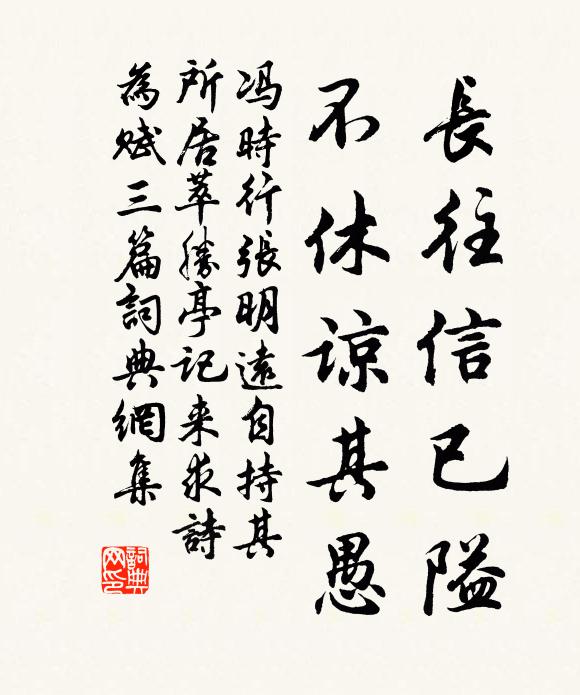 長往信已隘
不休諒其愚
冯時行張明遠自持其
所居萃勝亭記来求詩
為賦三篇詞典網集
詞典
网印